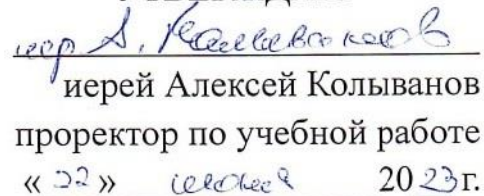 иер. А. Колыванов
иерей Алексей Колыванов
проректор по учебной работе
« 22 » июня 2023 г.